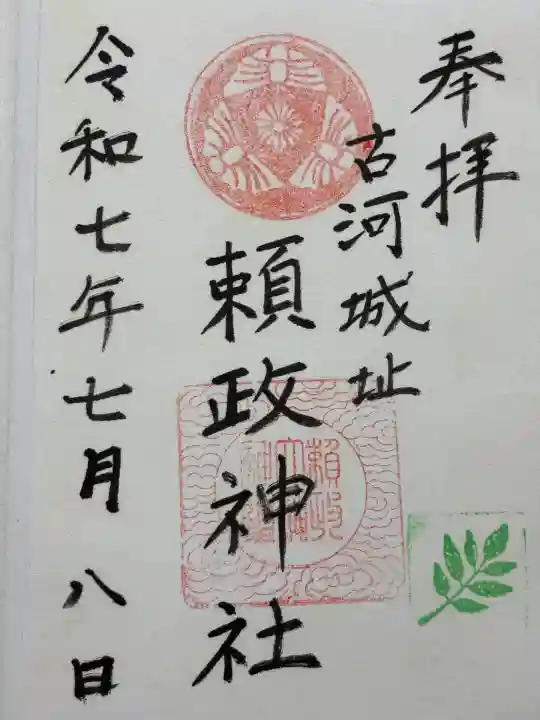 奉拝
古河城址
頼政神社
令和七年七月八日